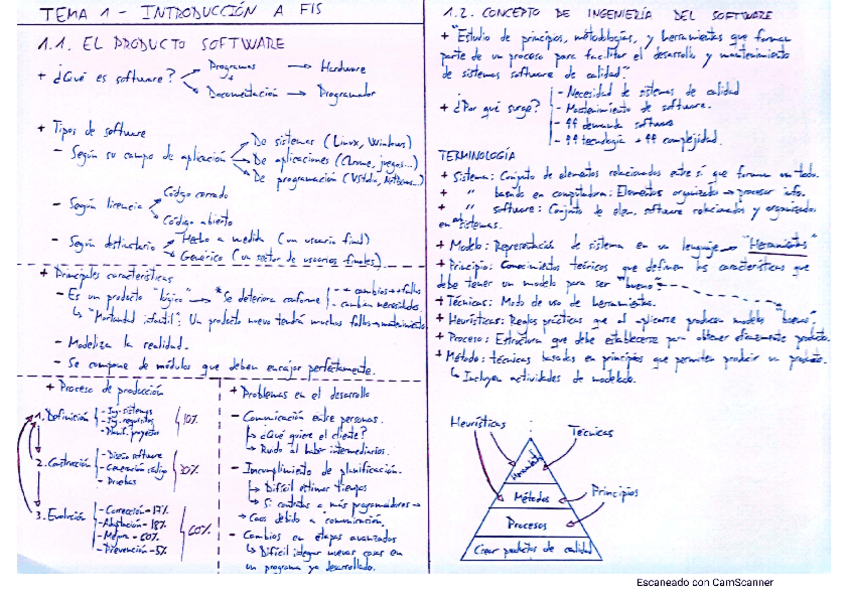 TEMA 1 - INTRODUCCIÓN A FIS
1.1. EL PRODUCTO SOFTWARE
+ ¿Qué es software? Programas → Hardware
Documentación → Programador
+ Tipos de software
- Según su campo de aplicación
De sistemas (Linux, Windows)
De aplicaciones (Chrome, juegos...)
De programación
- Según licencia
Código cerrado
Código abierto
- Según destinatario
Hecho a medida (un usuario final)
Genérico (un sector de usuarios finales)
+ Principales características
- Es un producto "lógico" → *Se deteriora conforme
- + cambios → + fallos
- cambian necesidades
↳ "Mortandad infantil": Un producto nuevo tendrá muchos fallos → mantenimiento
- Modeliza la realidad.
- Se compone de módulos que deben encajar perfectamente.
+ Proceso de producción
1. Definición
- Ing. sistemas
- Ing. requisitos
- Planif. proyectos
10%
2. Construcción
- Diseño software
- Generación código
- Pruebas
30%
3. Evolución
- Corrección - 17%
- Adaptación - 18%
- Mejora - 60%
- Prevención - 5%
60%
+ Problemas en el desarrollo
- Comunicación entre personas.
↳ ¿Qué quiere el cliente?
↳ Ruido al haber intermediarios.
- Incumplimiento de planificación.
↳ Difícil estimar tiempos
↳ Si contratas a más programadores →
→ Caos debido a comunicación.
- Cambios en etapas avanzadas
↳ Difícil integrar nuevas cosas en
un programa ya desarrollado.
1.2. CONCEPTO DE INGENIERÍA DEL SOFTWARE
+ "Estudio de principios, metodologías, y herramientas que forman
parte de un proceso para facilitar el desarrollo y mantenimiento
de sistemas software de calidad".
+ ¿Por qué surge?
- Necesidad de sistemas de calidad
- Mantenimiento de software.
- ↑↑ demanda software
- ↑↑ tecnología → ↑↑ complejidad.
TERMINOLOGÍA
+ Sistema: Conjunto de elementos relacionados entre sí que forman un todo.
+ " basado en computadora: Elementos organizados → procesar info.
+ " software: Conjunto de elem. software relacionados y organizados
en subsistemas.
+ Modelo: Representación de sistema en un lenguaje → "Herramientas"
+ Principio: Conocimientos teóricos que definen las características que
debe tener un modelo para ser "bueno".
+ Técnicas: Modo de uso de herramientas.
+ Heurísticas: Reglas prácticas que al aplicarse producen modelos "buenos".
+ Proceso: Estructura que debe establecerse para obtener eficazmente producto.
+ Método: técnicas basadas en principios que permiten producir un producto.
↳ Incluyen actividades de modelado.
Heurísticas
Técnicas
Herramientas
Métodos
Principios
Procesos
Crear productos de calidad
Escaneado con CamScanner